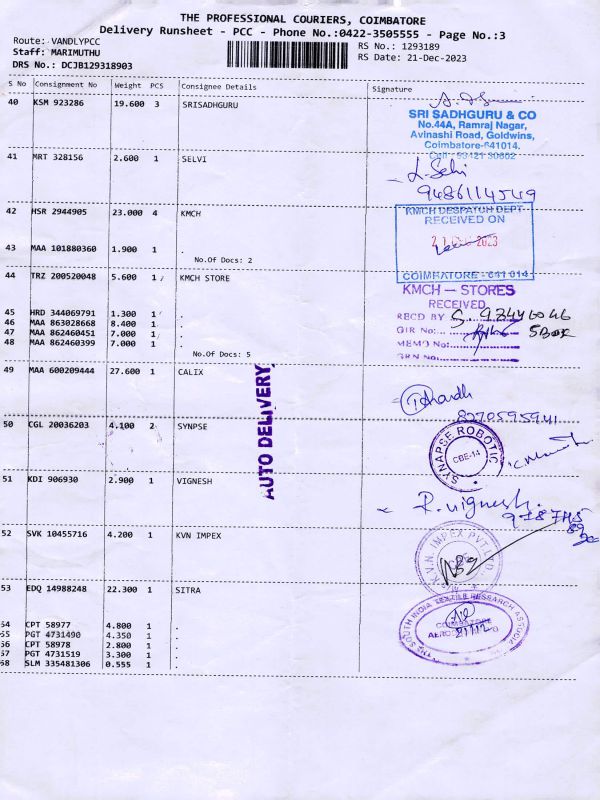 THE PROFESSIONAL COURIERS, COIMBATORE
Delivery Runsheet - PCC - Phone No.:0422-3505555 - Page No.:3
Route: VANDLYPCC
Staff: MARIMUTHU
DRS No.: DCJB129318903
RS No.: 1293189
RS Date: 21-Dec-2023
S No Consignment No Weight PCS Consignee Details Signature
40 KSM 923286 19.600 3 SRISADHGURU
SRI SADHGURU & CO
No.44A, Ramraj Nagar,
Avinashi Road, Goldwins,
Coimbatore-641014.
41 MRT 328156 2.600 1 SELVI
9486114549
42 HSR 2944905 23.000 4 KMCH
KMCH DESPATCH DEPT
RECEIVED ON
2023
COIMBATORE - 641 014
43 MAA 101880360 5.900 1 .
No.Of Docs: 2
44 TRZ 200520048 5.600 1 KMCH STORE
KMCH - STORES
RECEIVED
RECD BY
GIR No:
5 Box
MEMO No:
GRN No:
45 HRD 344069791 1.300 1 .
46 MAA 863028668 8.400 1 .
47 MAA 862460451 7.000 1 .
48 MAA 862460399 7.000 1 .
No.Of Docs: 5
49 MAA 600209444 27.600 1 CALIX
AUTO DELIVERY
8270595941
50 CGL 20036203 4.100 2 SYNPSE
SYNAPSE ROBOTIC
CBE-14
51 KDI 906930 2.900 1 VIGNESH
R. Vignesh.
52 SVK 10455716 4.200 1 KVN IMPEX
K.V.N. IMPEX PVT LTD
53 EDQ 14988248 22.300 1 SITRA
THE SOUTH INDIA TEXTILE RESEARCH ASSOCIA
COIMBATORE
21/12
54 CPT 58977 4.800 1 .
55 PGT 4731490 4.350 1 .
56 CPT 58978 2.800 1 .
57 PGT 4731519 3.300 1 .
58 SLM 335481306 0.555 1 .